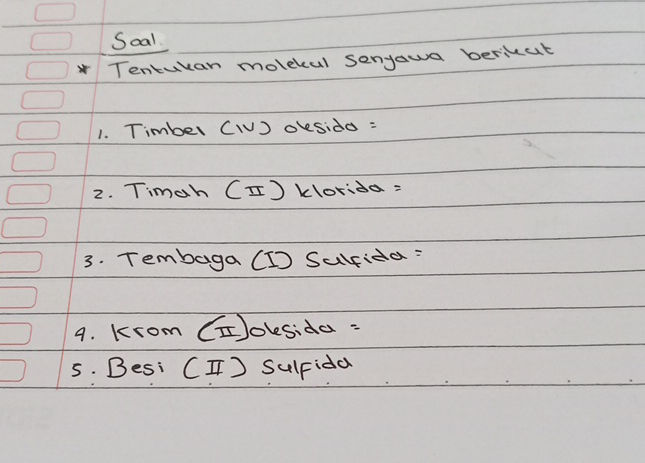 Soal.
* Tentukan molekul senyawa berikut
1. Timbel (IV) oksida =
2. Timah (II) klorida =
3. Tembaga (I) Sulfida =
4. Krom (II) oksida =
5. Besi (II) Sulfida